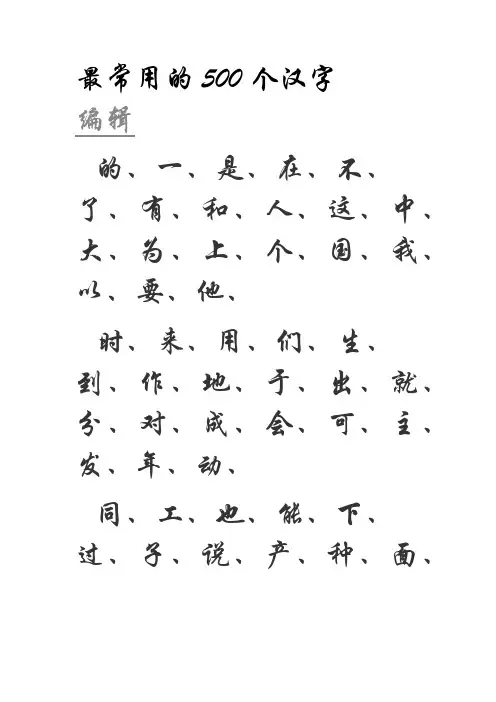 最常用的500个汉字
编辑
的、一、是、在、不、
了、有、和、人、这、中、
大、为、上、个、国、我、
以、要、他、
时、来、用、们、生、
到、作、地、于、出、就、
分、对、成、会、可、主、
发、年、动、
同、工、也、能、下、
过、子、说、产、种、面、